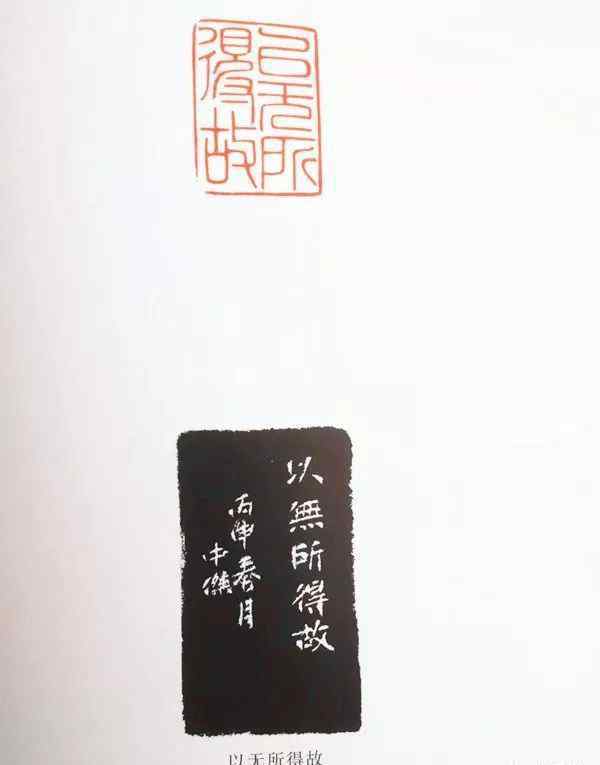 以无所
得故
以無所得故
丙申春月
中傑
以无所得故